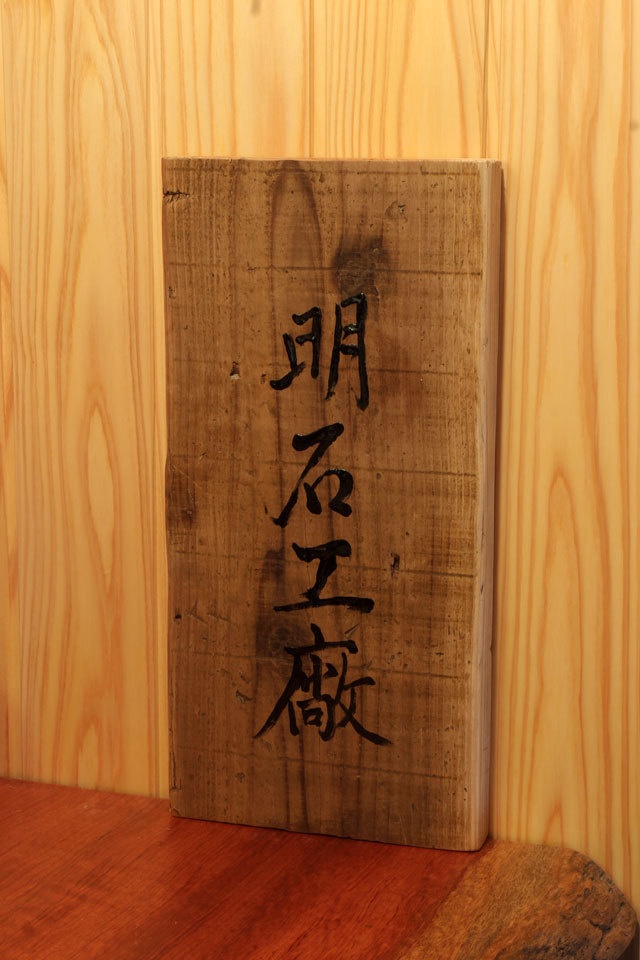 明石工廠